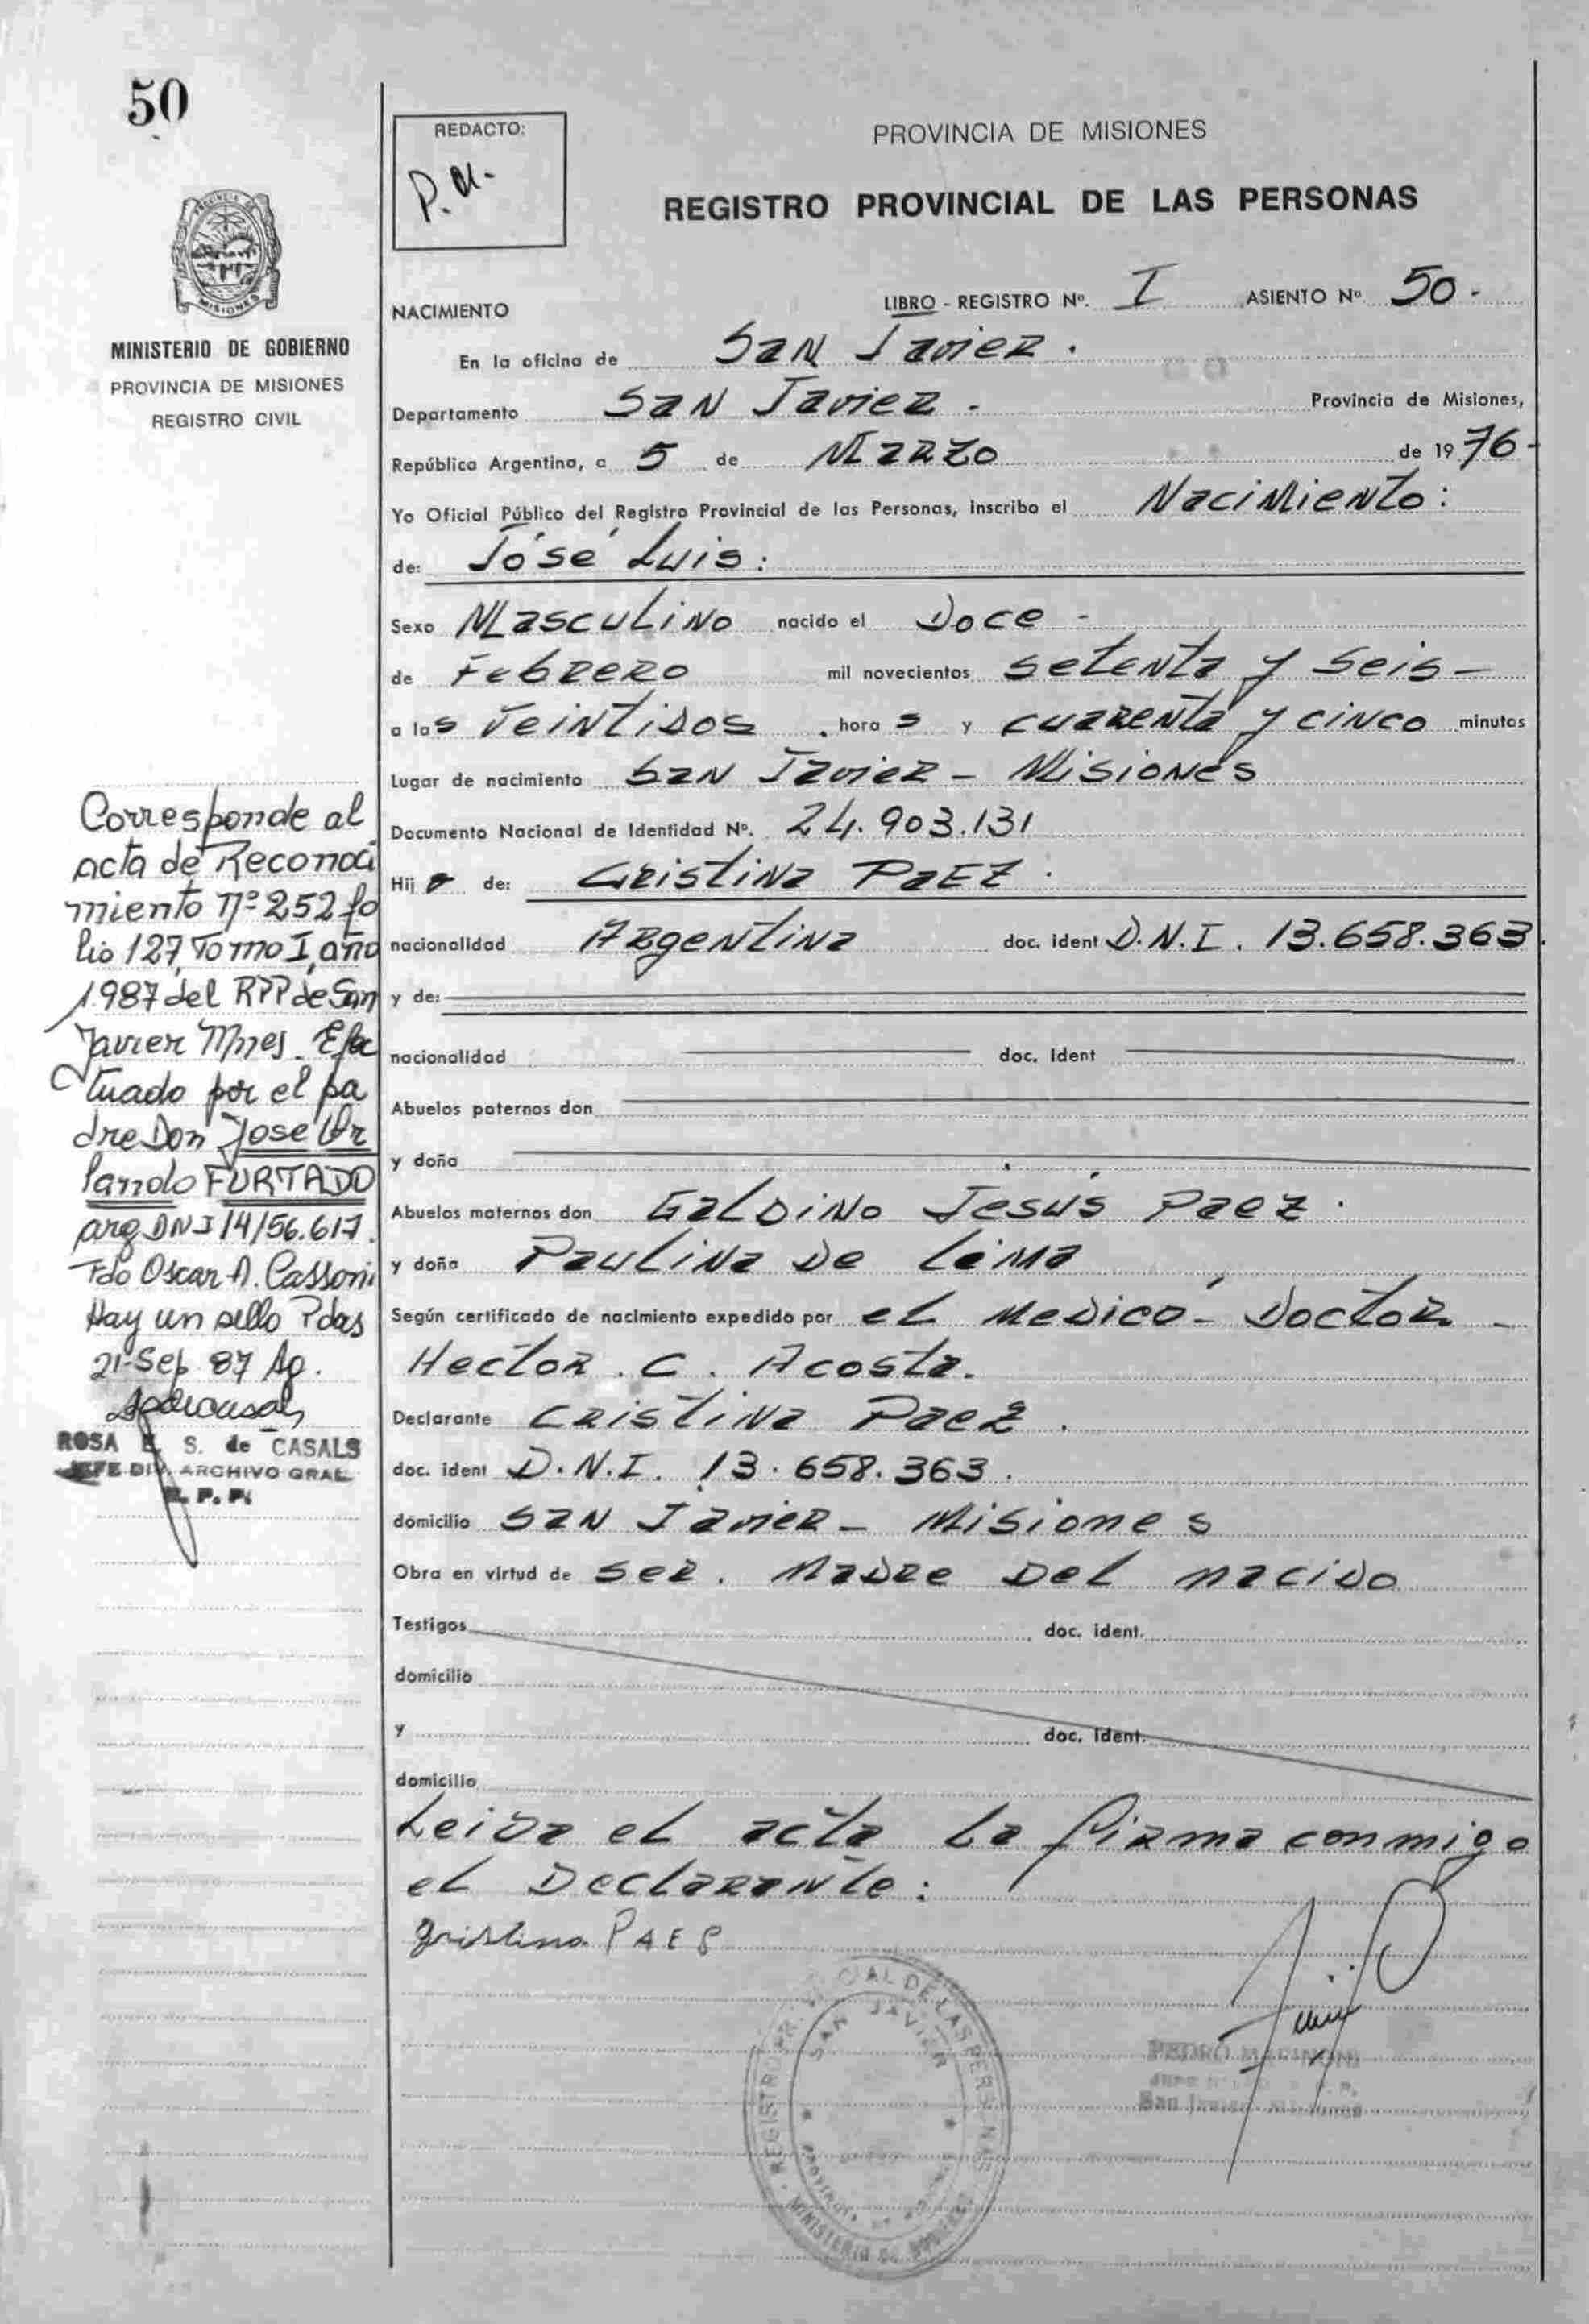 50
MINISTERIO DE GOBIERNO
PROVINCIA DE MISIONES
REGISTRO CIVIL
REDACTO:
P.M.
PROVINCIA DE MISIONES
REGISTRO PROVINCIAL DE LAS PERSONAS
NACIMIENTO LIBRO - REGISTRO Nº. I ASIENTO Nº 50.
En la oficina de San Javier.
Departamento San Javier. Provincia de Misiones,
República Argentina, a 5 de Marzo de 1976-
Yo Oficial Público del Registro Provincial de las Personas, inscribo el Nacimiento:
de: José Luis:
Sexo Masculino nacido el Doce -
de Febrero mil novecientos setenta y seis -
a las veintidos horas y cuarenta y cinco minutos
Lugar de nacimiento San Javier - Misiones
Documento Nacional de Identidad Nº. 24.903.131
Hijo de: Cristina Paez.
nacionalidad Argentina doc. ident D.N.I. 13.658.363.
y de:
nacionalidad doc. ident
Abuelos paternos don
y doña
Abuelos maternos don Galdino Jesús Paez.
y doña Paulina De Lima
Según certificado de nacimiento expedido por el Medico - Doctor -
Hector. C. Acosta.
Declarante Cristina Paez.
doc. ident D.N.I. 13.658.363.
domicilio San Javier - Misiones
Obra en virtud de ser. Madre Del nacido
Testigos doc. ident.
domicilio
y doc. ident.
domicilio
Leida el acta La firma conmigo
el Declarante:
Cristina PAES
Corresponde al
acta de Reconoci
miento Nº 252 fo
lio 127, Tomo I, año
1987 del RPP de San
Javier Mnes. Efec
tuado por el pa
dre Don Jose Or
lando FURTADO
arg DNI 14/56.617.
Fdo Oscar A. Cassoni
Hay un sello Pdas
21-Sep 87 Ag.
ROSA E. S. de CASALS
JEFE DIV. ARCHIVO GRAL.
R. P. P.
REGISTRO PROVINCIAL DE LAS PERSONAS
SAN JAVIER
MINISTERIO DE GOBIERNO
PEDRO MARINONI
San Javier Misiones